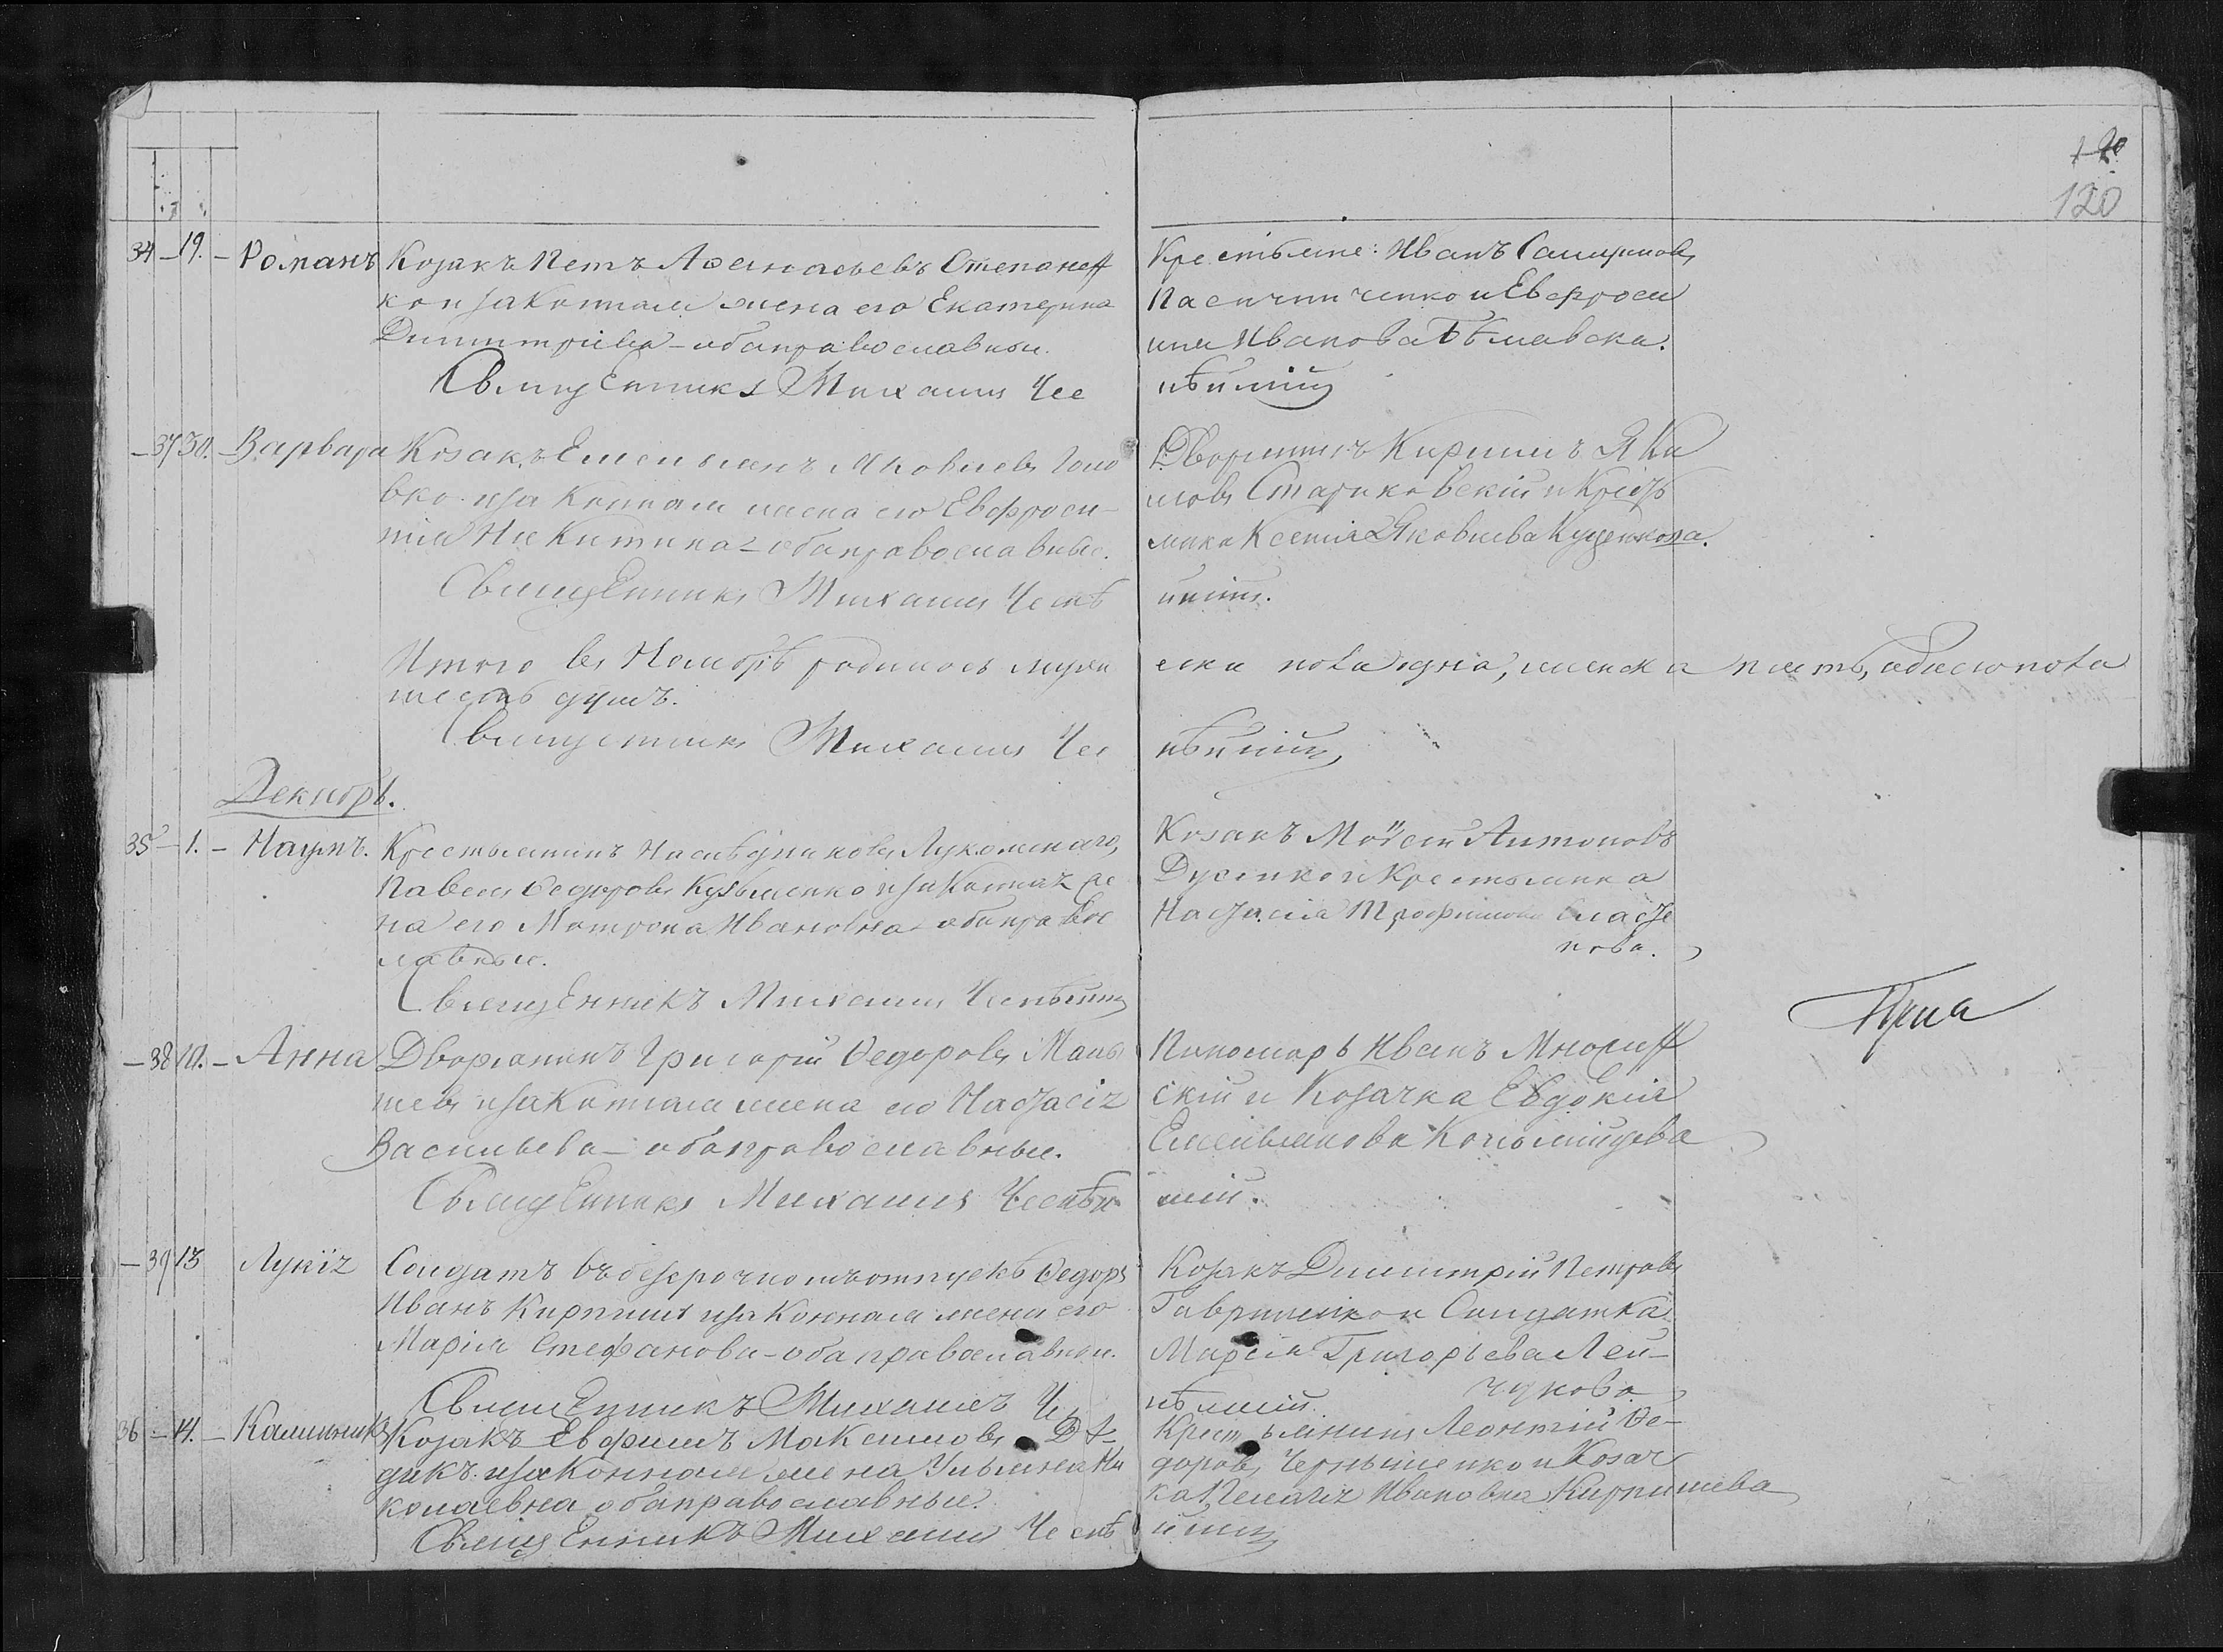 120
34 - 19. - Романъ Козакъ Петръ Аѳанасьевъ Степанен
ко и законная жена его Екатерина
Димитріева - оба православные.
Священникъ Михаилъ
Крестьяне: Иванъ
и Евфроси
нія Иванова
- 37 30. - Варвара Козакъ Емельянъ Яковлевъ Голо
вко и законная жена его Евфроси-
нія Никитина - оба православные.
Священникъ Михаилъ
Дворянинъ Кириллъ Яки
мовъ Стариковскій и Кресть
янка Ксенія Яковлева Куценкова.
Итого въ Ноябрѣ родилось муже
ска пола одна, женска пять, обоего пола
шесть душъ.
Священникъ Михаилъ
Декабрь.
35 - 1. - Наумъ. Крестьянинъ Наслѣдниковъ Лукомскаго,
Павелъ Ѳедоровъ Кузьменко и законная же
на его Матрона Ивановна - оба правос
лавные.
Священникъ Михаилъ
Козакъ Мойсей Антоновъ
и Крестьянка
Настасія Трофимова
нова.
- 38 10. - Анна Дворянинъ Григорій Ѳедоровъ
шевъ и законная жена его Настасія
Васильева - оба православные.
Священникъ Михаилъ
Пономарь Иванъ
скій и Козачка Евдокія
Емельянова
- 39 13 Лукія Солдатъ въ безсрочномъ отпускѣ Ѳедоръ
Иванъ Кирпишъ и законная жена его
Марія Стефанова - оба православные.
Священникъ Михаилъ
Козакъ Димитрій Петровъ
Гавриленко и Солдатка
Марія Григорьева Лей-
чукова
36 - 14. - Калинникъ Козакъ Евфимъ Максимовъ Дѣ-
дикъ и законная жена Ульяна Ни
колаевна оба православные.
Священникъ Михаилъ
Крестьянинъ Леонтій Ѳе-
доровъ Чернышенко и Козач
ка Пелагія Ивановна Кирпишева